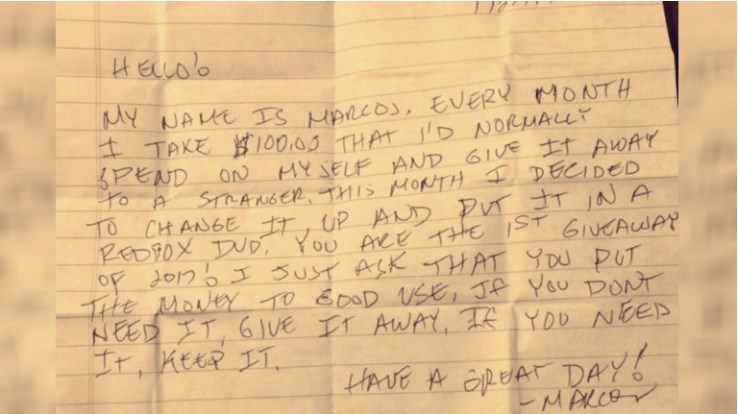 HELLO!
MY NAME IS MARCOS. EVERY MONTH
I TAKE $100.00 THAT I'D NORMALLY
SPEND ON MYSELF AND GIVE IT AWAY
TO A STRANGER. THIS MONTH I DECIDED
TO CHANGE IT UP AND PUT IT IN A
REDBOX DVD. YOU ARE THE 1ST GIVEAWAY
OF 2017! I JUST ASK THAT YOU PUT
THE MONEY TO GOOD USE, IF YOU DONT
NEED IT, GIVE IT AWAY, IF YOU NEED
IT, KEEP IT.
HAVE A GREAT DAY!
- MARCOS